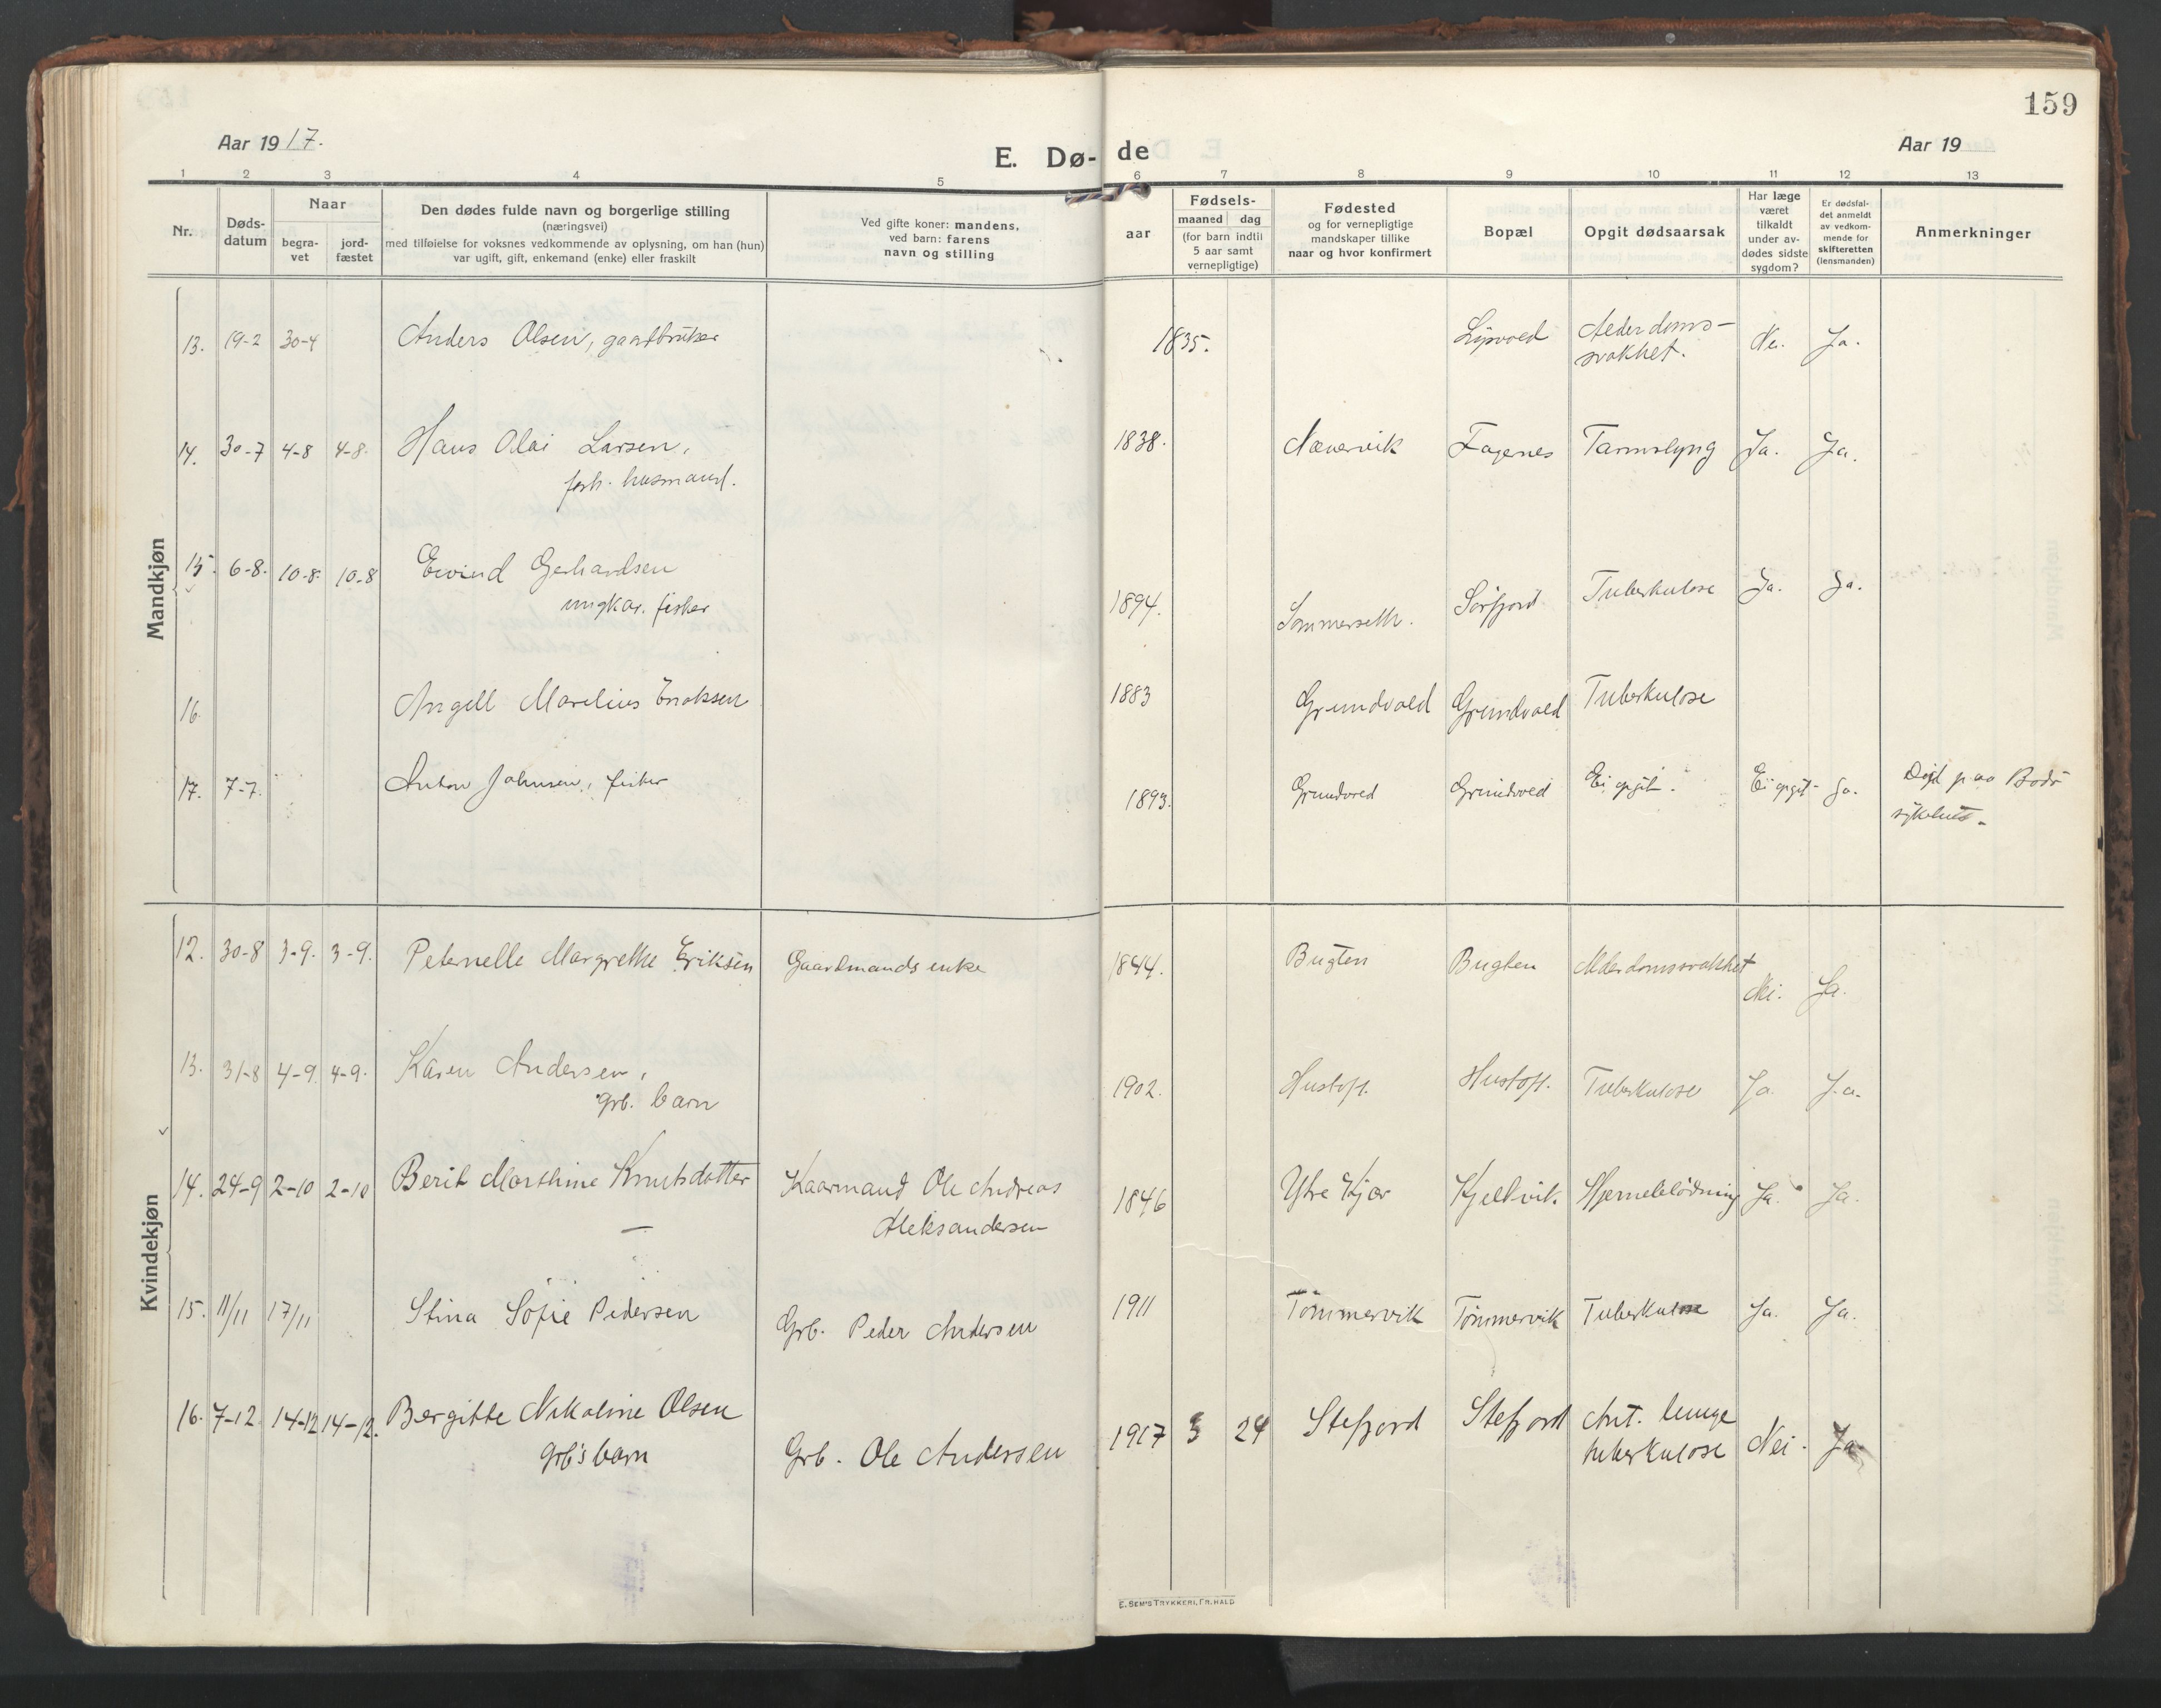 159
Aar 1917.
E. Dø-
de
Aar 19
1 2 3 4 5 6 7 8 9 10 11 12 13
Nr.
Døds-
datum
Naar
begra-
vet
jord-
fæstet
Den dødes fulde navn og borgerlige stilling
(næringsvei)
med tilføielse for voksnes vedkommende av oplysning, om han (hun)
var ugift, gift, enkemand (enke) eller fraskilt
Ved gifte koner: mandens,
ved barn: farens
navn og stilling
aar
Fødsels-
maaned dag
(for barn indtil
5 aar samt
vernepligtige)
Fødested
og for vernepligtige
mandskaper tillike
naar og hvor konfirmert
Bopæl
Opgit dødsaarsak
Har læge
været
tilkaldt
under av-
dødes sidste
sygdom?
Er dødsfal-
det anmeldt
av vedkom-
mende for
skifteretten
(lensmanden)
Anmerkninger
Mandkjøn
13. 19-2 30-4 Anders Olsen, gaardbruker 1835. Alderdoms-
svakhet. Nei. Ja.
14. 30-7 4-8 4-8. Hans Olai Larsen, 1838. Nævervik Fagernes Tarmslyng Ja. Ja.
forh. husmand.
15. 6-8. 10-8. 10-8 Eivind Gerhardsen
ungkar. fisker 1894. Sommerseth. Sörfjord Tuberkulose Ja. Ja.
16. Angell Marelius Enoksen 1883 Grundvold Grundvold Tuberkulose
17. 7-7. Anton Johnsen, fisker 1893. Ei opgit. Ei opgit- Ja. Död paa Bodö
sykehus.
Kvindekjøn
12. 30-8 3-9. 3-9. Peternelle Margrethe Eriksen Gaardmands enke 1844. Bugten Bugten Alderdomssvakhet
Nei. Ja.
13. 31-8 4-9. 4-9. Karen Andersen, 1902. Hustoft. Hustoft. Tuberkulose Ja. Ja.
grb. barn
14. 24-9 2-10 2-10 Berit Marthine Knutsdatter Kaarmand Ole Andreas 1846 Ytre Kjær Kjelvik. Hjerneblödning Ja. Ja.
— Aleksandersen
15. 11/11 17/11 Stina Sofie Pedersen Grb. Peder Andersen 1911 Tömmervik Tömmervik Tuberkulose Ja. Ja.
16. 7-12. 14-12 14-12. Bergitte Nikoline Olsen 1917 3 24 Stefjord Stefjord Ant. lunge
grb's barn Grb. Ole Andersen tuberkulose Nei. Ja
E. SEM'S TRYKKERI, FR.HALD